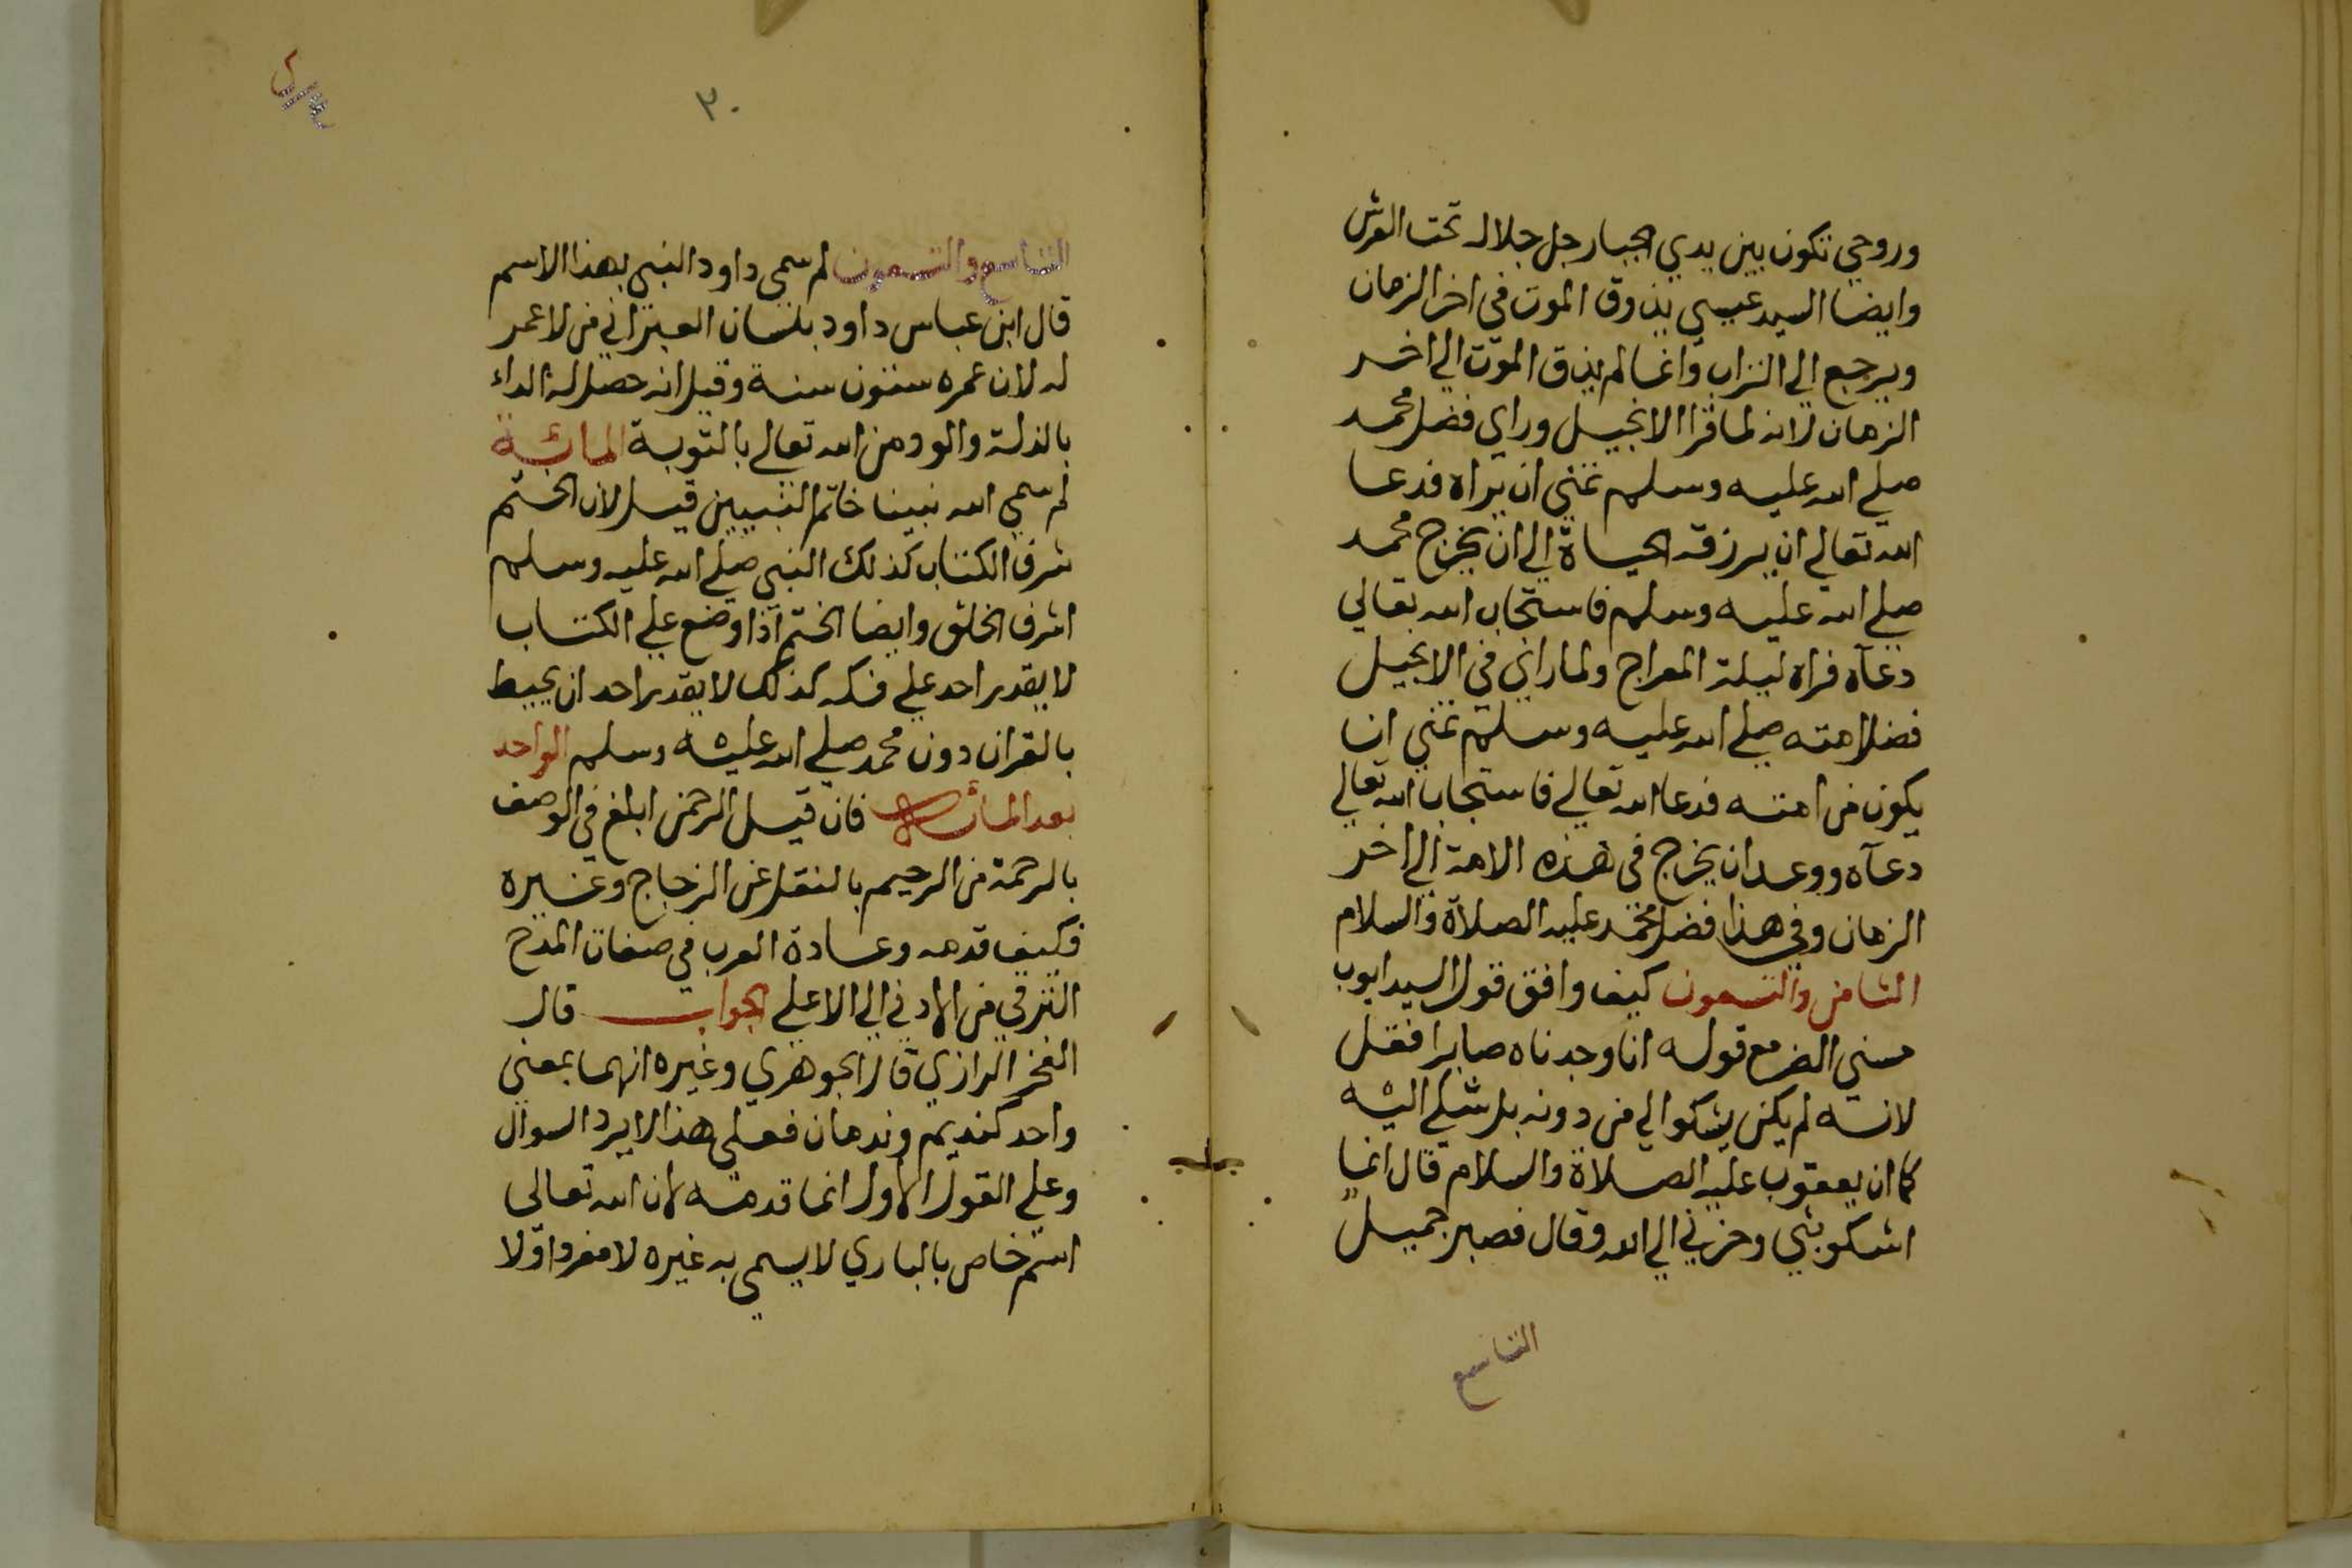 وروحي تكون بين يدي الجبار جل جلاله تحت العرش
وايضا السيد عيسي يذوق الموت في اخر الزمان
ويرجع الي التراب وانما لم يذق الموت الي اخر
الزمان لانه لما قرا الانجيل وراي فضل محمد
صلي الله عليه وسلم تمني ان يراه فدعا
الله تعالي ان يرزقه الحياة الي ان يخرج محمد
صلي الله عليه وسلم فاستجاب الله تعالي
دعآه فراه ليلة المعراج ولما راي في الانجيل
فضل امته صلي الله عليه وسلم تمني ان
يكون من امته فدعا الله تعالي فاستجاب الله تعالي
دعآه ووعد ان يخرج في هذه الامة الي اخر
الزمان وفي هذا فضل محمد عليه الصلاة والسلام
الثامن والتسعون كيف وافق قول السيد ايوب
مسني الضر مع قوله انا وجدناه صابرا فقل
لانه لم يكن يشكوا الي من دونه بل شكي اليه
كما ان يعقوب عليه الصلاة والسلام قال انما
اشكو بثي وحزني الي الله وقال فصبر جميل
التاسع
٣٠
التاسع والتسعون لم سمي داود النبي بهذا الاسم
قال ابن عباس داود بلسان العبراني من لا عمر
له لان عمره ستون سنة وقيل انه حصل له الداء
بالذلة والود من الله تعالي بالتوبة المائة
لم سمي الله نبينا خاتم النبيين قيل لان الختم
شرف الكتاب كذلك النبي صلي الله عليه وسلم
اشرف الخلق وايضا الختم اذا وضع علي الكتاب
لا يقدر احد علي فكه كذلك لا يقدر احد ان يحيط
بالقران دون محمد صلي الله عليه وسلم الواحد
بعد المائة فان قيل الرحمن ابلغ في الوصف
بالرحمة من الرحيم بالنقل عن الزجاج وغيره
فكيف قدمه وعادة العرب في صفات المدح
الترقي من الادني الي الاعلي الجواب قال
الفخر الرازي قال الجوهري وغيره انهما بمعني
واحد كنديم وندمان فعلي هذا لا يرد السوال
وعلي القول الاول انما قدمه لان الله تعالي
اسم خاص بالباري لا يسمي به غيره لا مفردا ولا